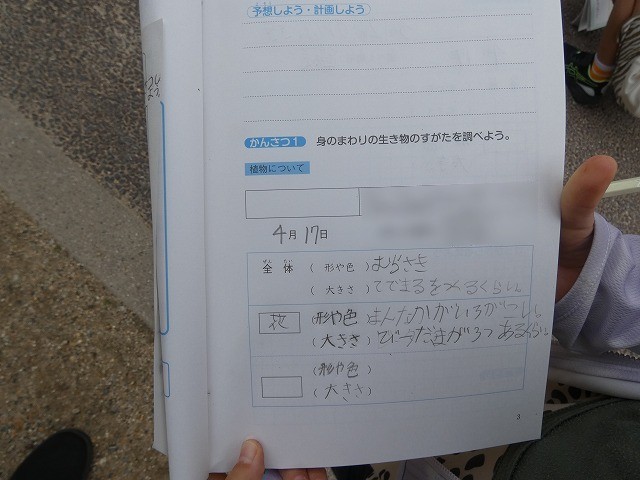 予想しよう・計画しよう
かんさつ1 身のまわりの生き物のすがたを調べよう。
植物について
4月17日
全体 (形や色) むらさき
(大きさ) てできるをつくるくらい
花 (形や色) はんたかがいろが
(大きさ) びーだまが3つあるくらい
(形や色)
(大きさ)
3